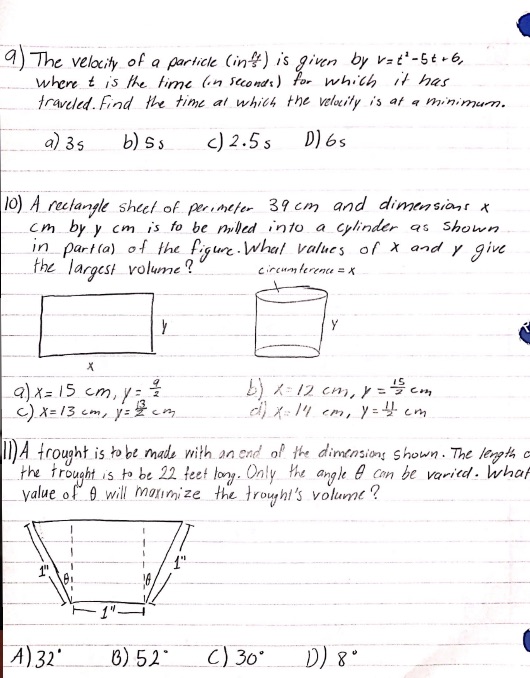 9) The velocity of a particle (in ft/s) is given by v=t²-5t+6,
where t is the time (in seconds) for which it has
traveled. Find the time at which the velocity is at a minimum.
a) 3s b) 5s c) 2.5s D) 6s
10) A rectangle sheet of perimeter 39 cm and dimensions x
cm by y cm is to be rolled into a cylinder as shown
in part(a) of the figure. What values of x and y give
the largest volume?
circumference = x
y
y
x
a) x= 15 cm, y= 9/2
b) x=12 cm, y= 15/2 cm
c) x=13 cm, y= 13/2 cm
d) x=14 cm, y= 11/2 cm
11) A trought is to be made with an end of the dimensions shown. The length
the trought is to be 22 feet long. Only the angle θ can be varied. What
value of θ will maximize the trought's volume?
1" θ θ 1"
1"
A) 32° B) 52° C) 30° D) 8°